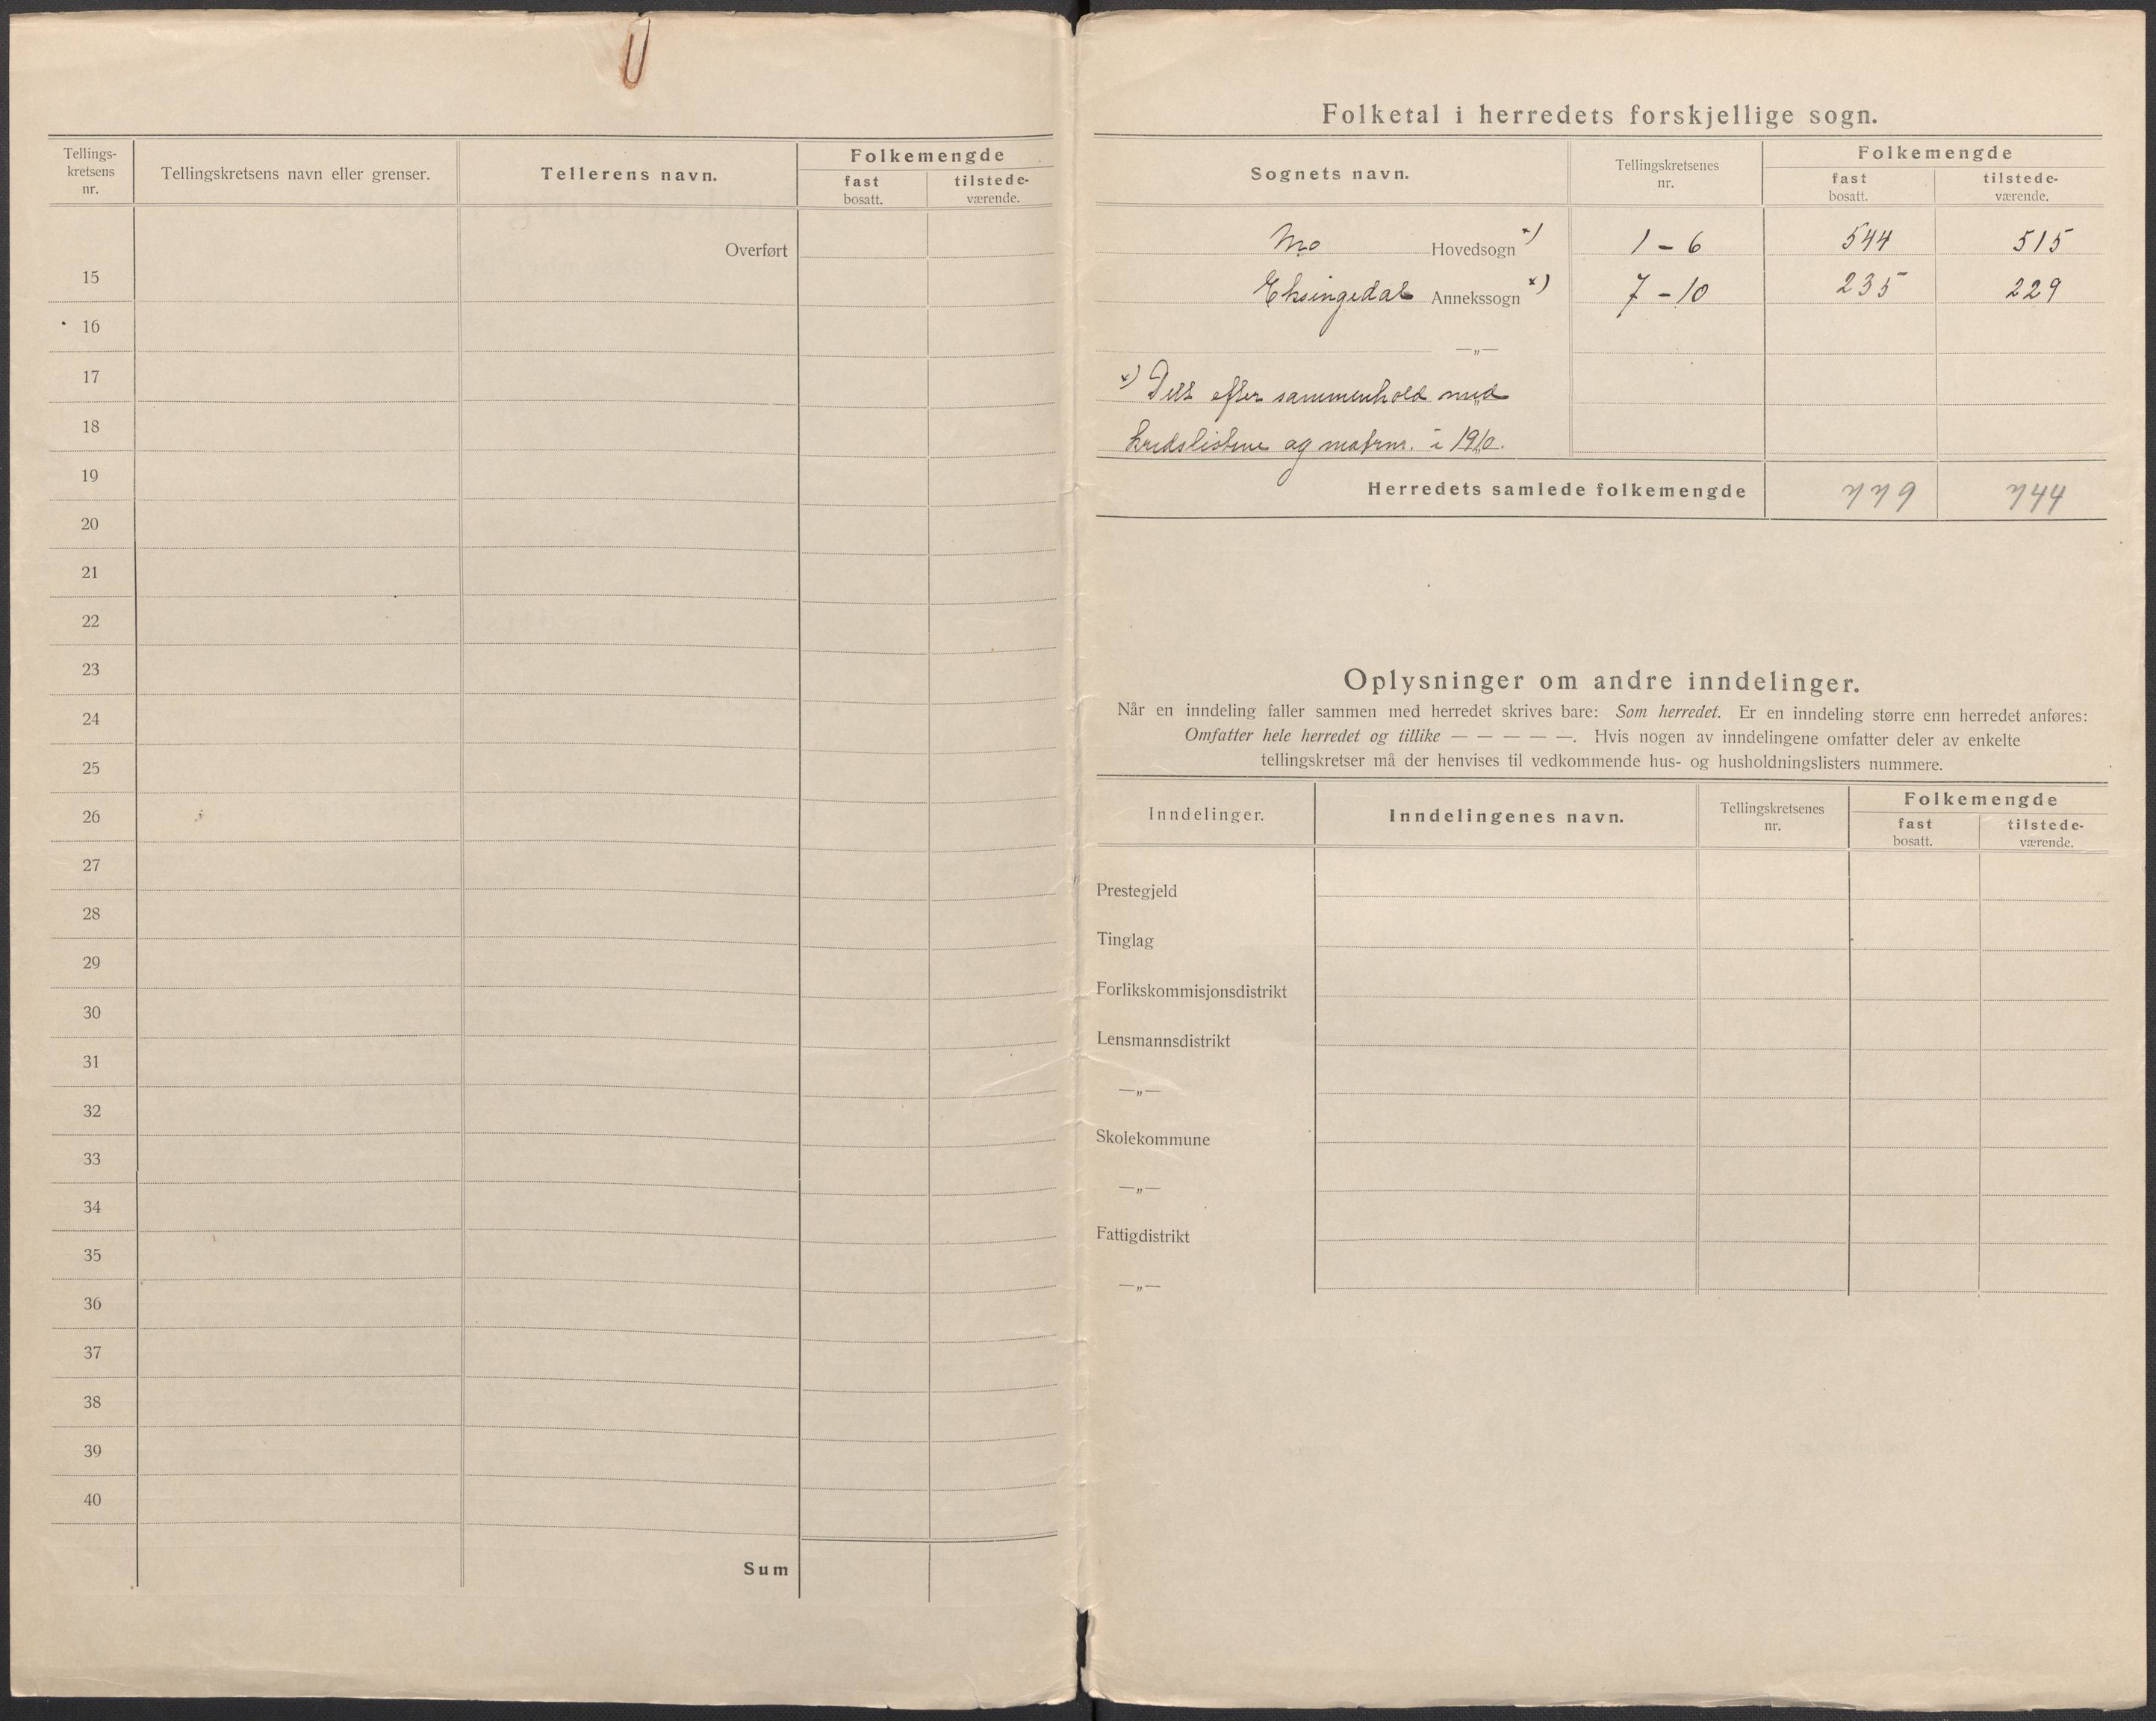 Tellings-
kretsens
nr.
Tellingskretsens navn eller grenser.
Tellerens navn.
Folkemengde
fast
bosatt.
tilstede-
værende.
Overført
15
16
17
18
19
20
21
22
23
24
25
26
27
28
29
30
31
32
33
34
35
36
37
38
39
40
Sum
Folketal i herredets forskjellige sogn.
Sognets navn.
Tellingskretsenes
nr.
Folkemengde
fast
bosatt.
tilstede-
værende.
Mo Hovedsogn x) 1 - 6 544 515
Eksingedal Annekssogn x) 7 - 10 235 229
—„—
x) Delt efter sammenhold med
kredslistene og matrnr. i 1910.
Herredets samlede folkemengde 779 744
Oplysninger om andre inndelinger.
Når en inndeling faller sammen med herredet skrives bare: Som herredet. Er en inndeling større enn herredet anføres:
Omfatter hele herredet og tillike — — — — —. Hvis nogen av inndelingene omfatter deler av enkelte
tellingskretser må der henvises til vedkommende hus- og husholdningslisters nummere.
Inndelinger.
Inndelingenes navn.
Tellingskretsenes
nr.
Folkemengde
fast
bosatt.
tilstede-
værende.
Prestegjeld
Tinglag
Forlikskommisjonsdistrikt
Lensmannsdistrikt
—„—
Skolekommune
—„—
Fattigdistrikt
—„—